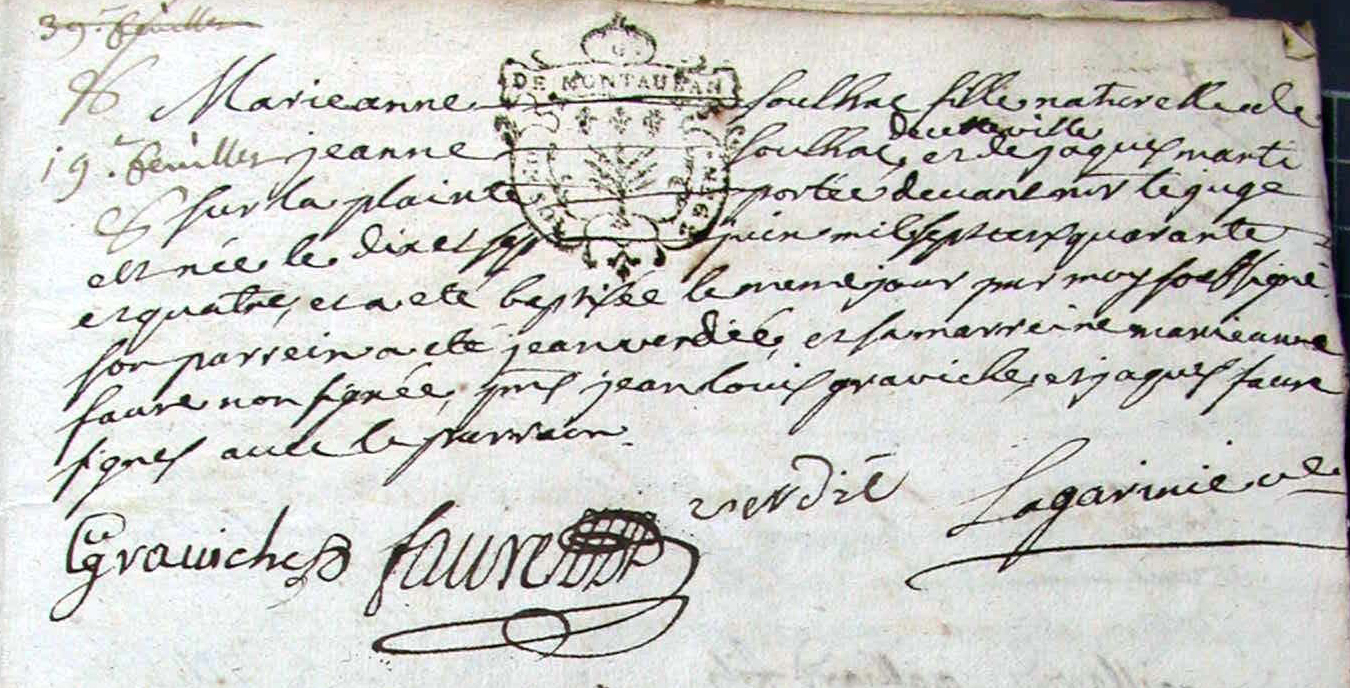 39.e feuillet
DE MONTAUBAN
Marieanne Soulhac fille naturelle de
19.e feuillet jeanne Soulhac, et de jaques marti
de cette ville
sur la plainte portée devant mr le juge
est née le dix et sept juin mil sept cens quarante
et quatre, et a eté baptisée le meme jour par moy soussigné
son parrein a eté jean verdié, et sa marreine marieanne
faure non signée, pns jean louis graviche, et jaques faure
signes avec le parrain.
graviche
faure
verdié
Lagarinie